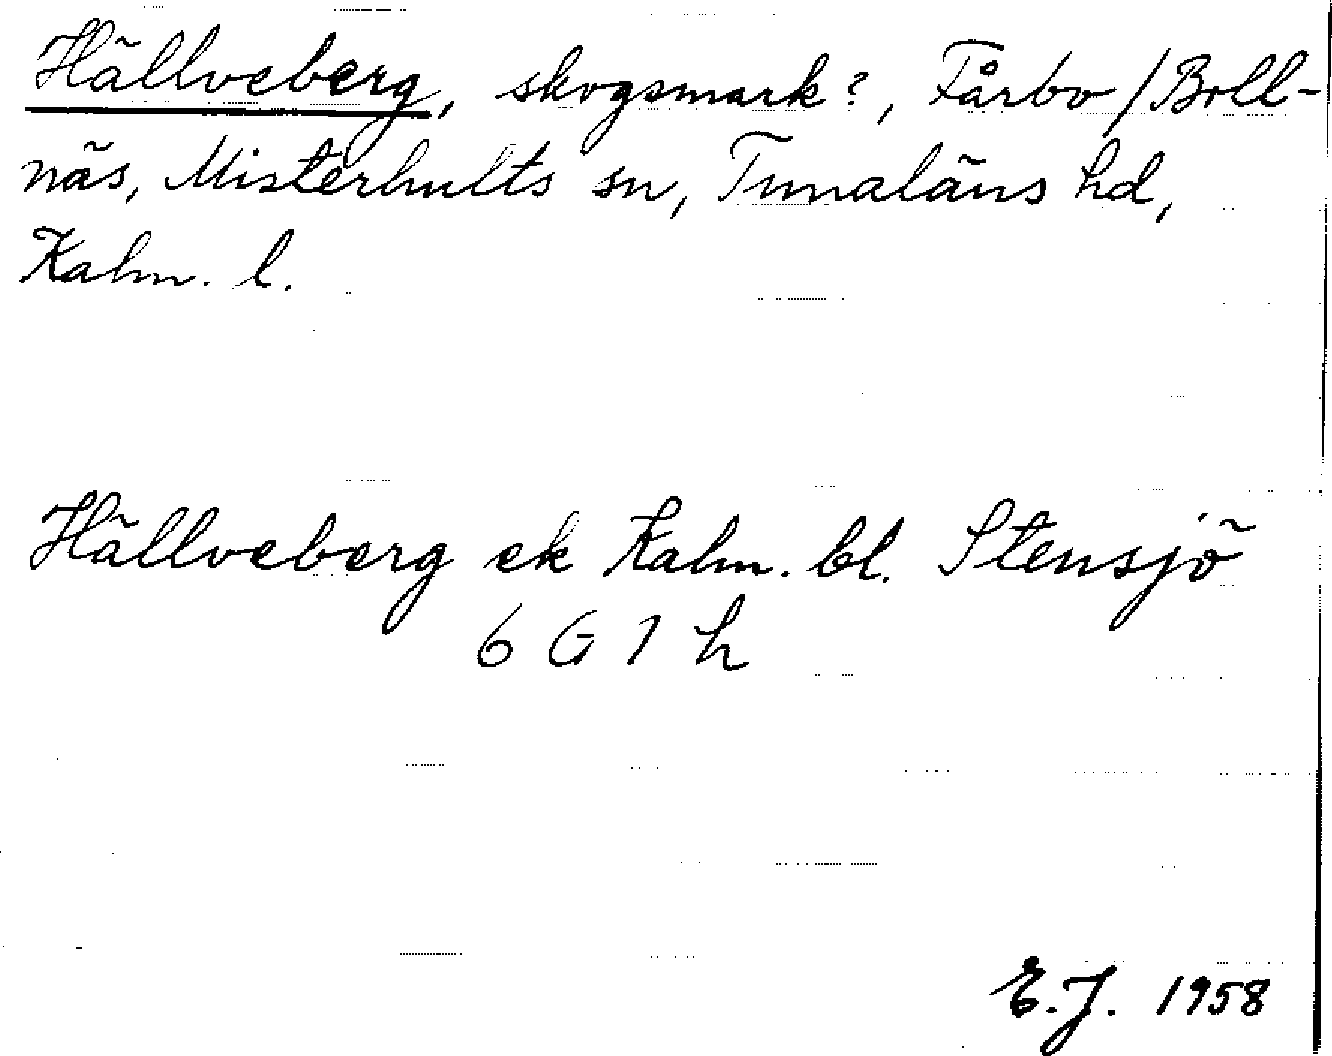 Hällveberg, skogsmark?, Fårbo/Boll-
näs, Misterhults sn, Tunaläns hd,
Kalm. l.
Hällveberg ek Kalm. bl. Stensjö
6 G 1 h
E.J. 1958